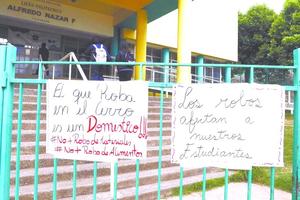 LICEO POLIVALENTE
ALFREDO NAZAR F
El que Roba
en el Liceo
es un Domestico!!
# No + Robo de Materiales
# No + Robo de Alimentos
Los robos
afectan a
nuestros
Estudiantes